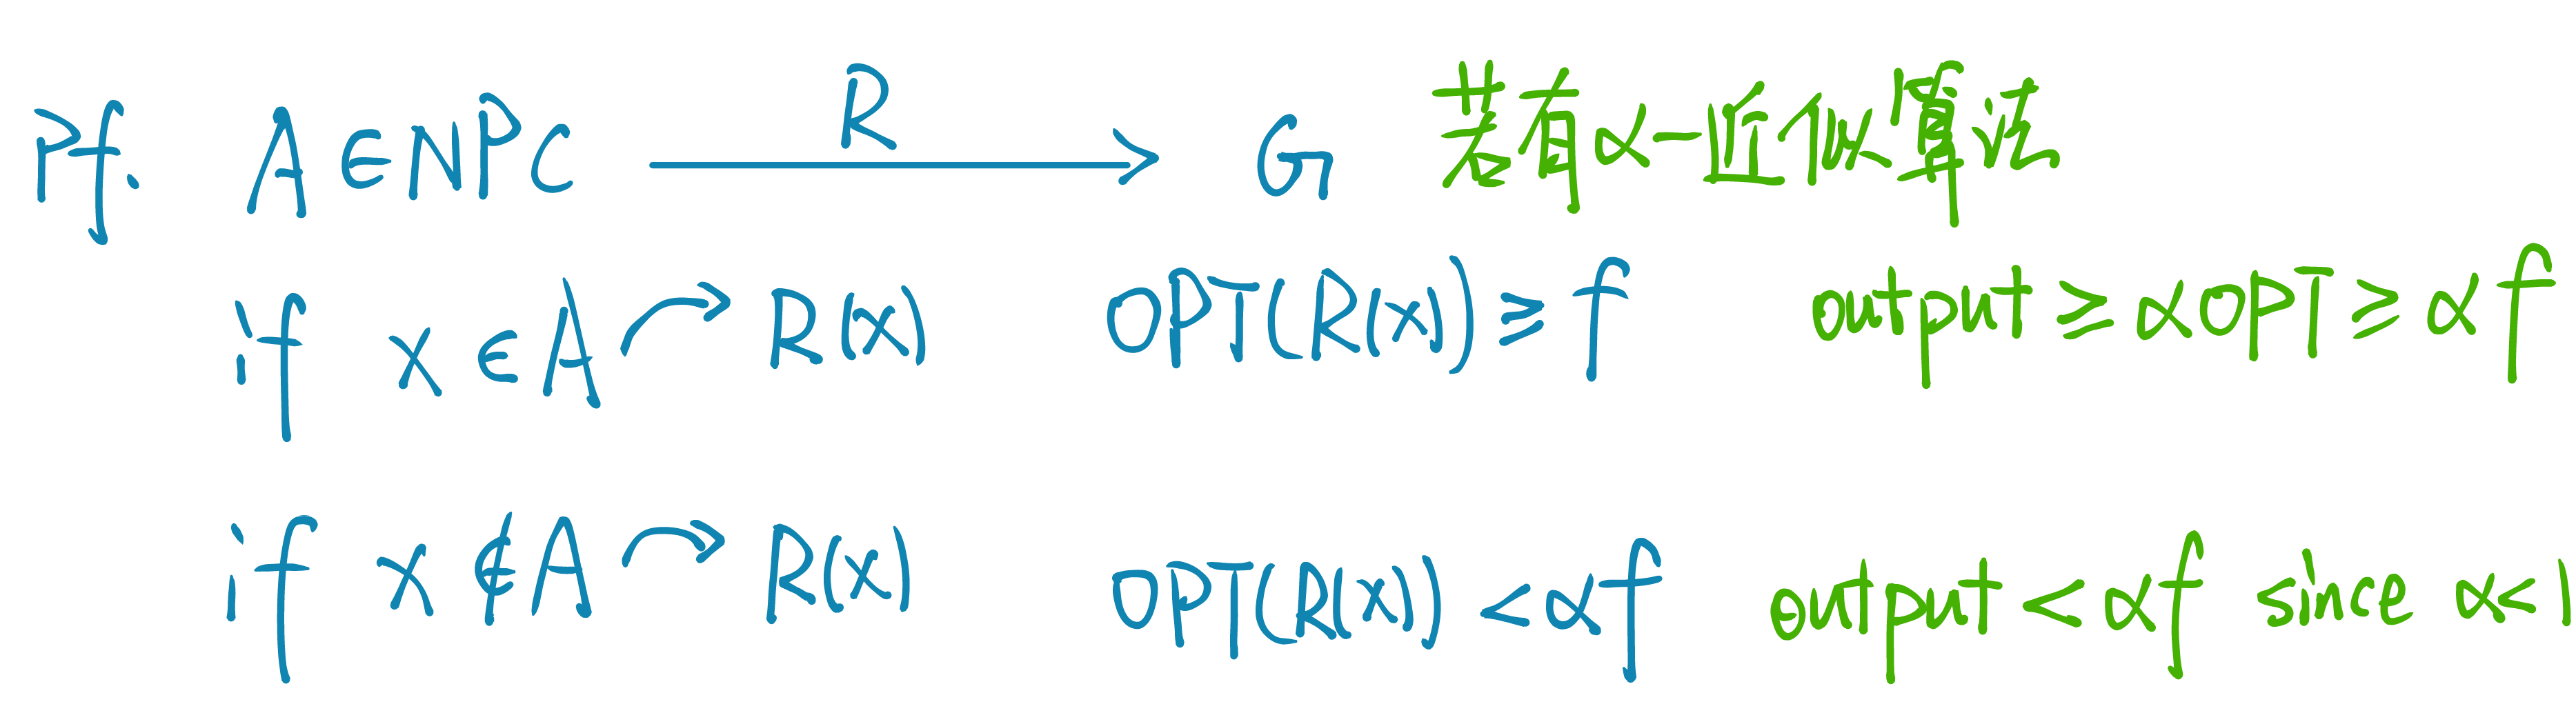 Pf. A∈NPC R→ G 若有α-近似算法
if x∈A → R(x) OPT(R(x))≥f output≥αOPT≥αf
if x∉A → R(x) OPT(R(x))<αf output<αf since α<1